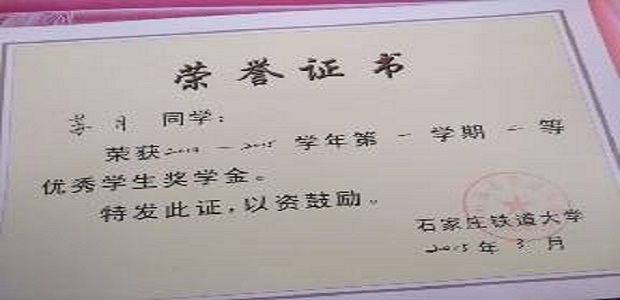 荣誉证书
月 同学:
荣获2014-2015学年第一学期一等
优秀学生奖学金。
特发此证,以资鼓励。
石家庄铁道大学
2015年3月